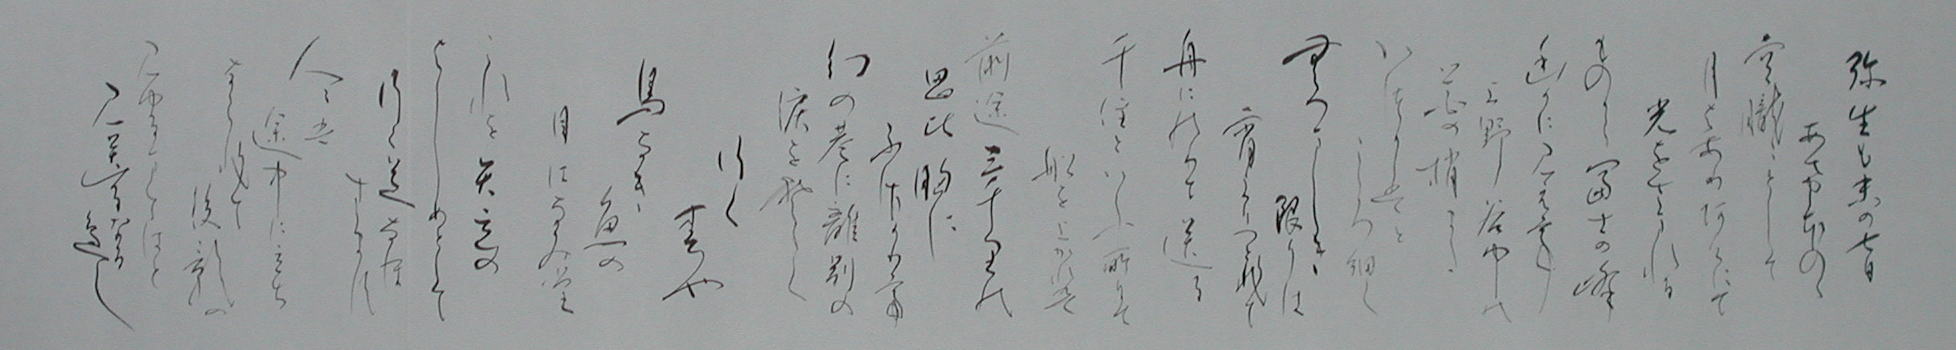 弥生も末の七日
あけぼのゝ
空朧々として
月はあり明にて
光をさまれる
ものから富士の峰
幽かに見えて
上野谷中の
花の梢また
いつかはと
こころ細し
むつましき
限りは
宵よりつどひて
舟にのりて送る
千住といふ所にて
船を上がれば
前途三千里の
思比胸に
ふさがりて
幻の巷に離別の
涙をそそく
行く
春や
鳥なき
魚の
目はなみ堂
これを矢立の
はしめとして
行く道なほ
すすまず
人々は
途中に立ち
ならびて
後影の
見ゆるまではと
見送るなるべし